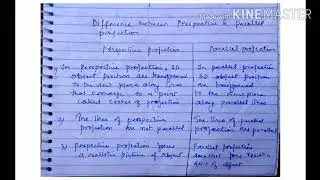 Made with KINEMASTER
Difference between Perspective & Parallel
projection
Perspective projection
Parallel projection
1) In Perspective projection, 3D
object position are transformed
to the view plane along lines
that converge to a point
called center of projection
In parallel projection
3D object position
are transformed
to the view plane
along parallel lines
2) The lines of perspective
projection are not parallel
The lines of parallel
projection are parallel
3) Perspective projection
a realistic picture of object
Parallel projection
realistic
of object